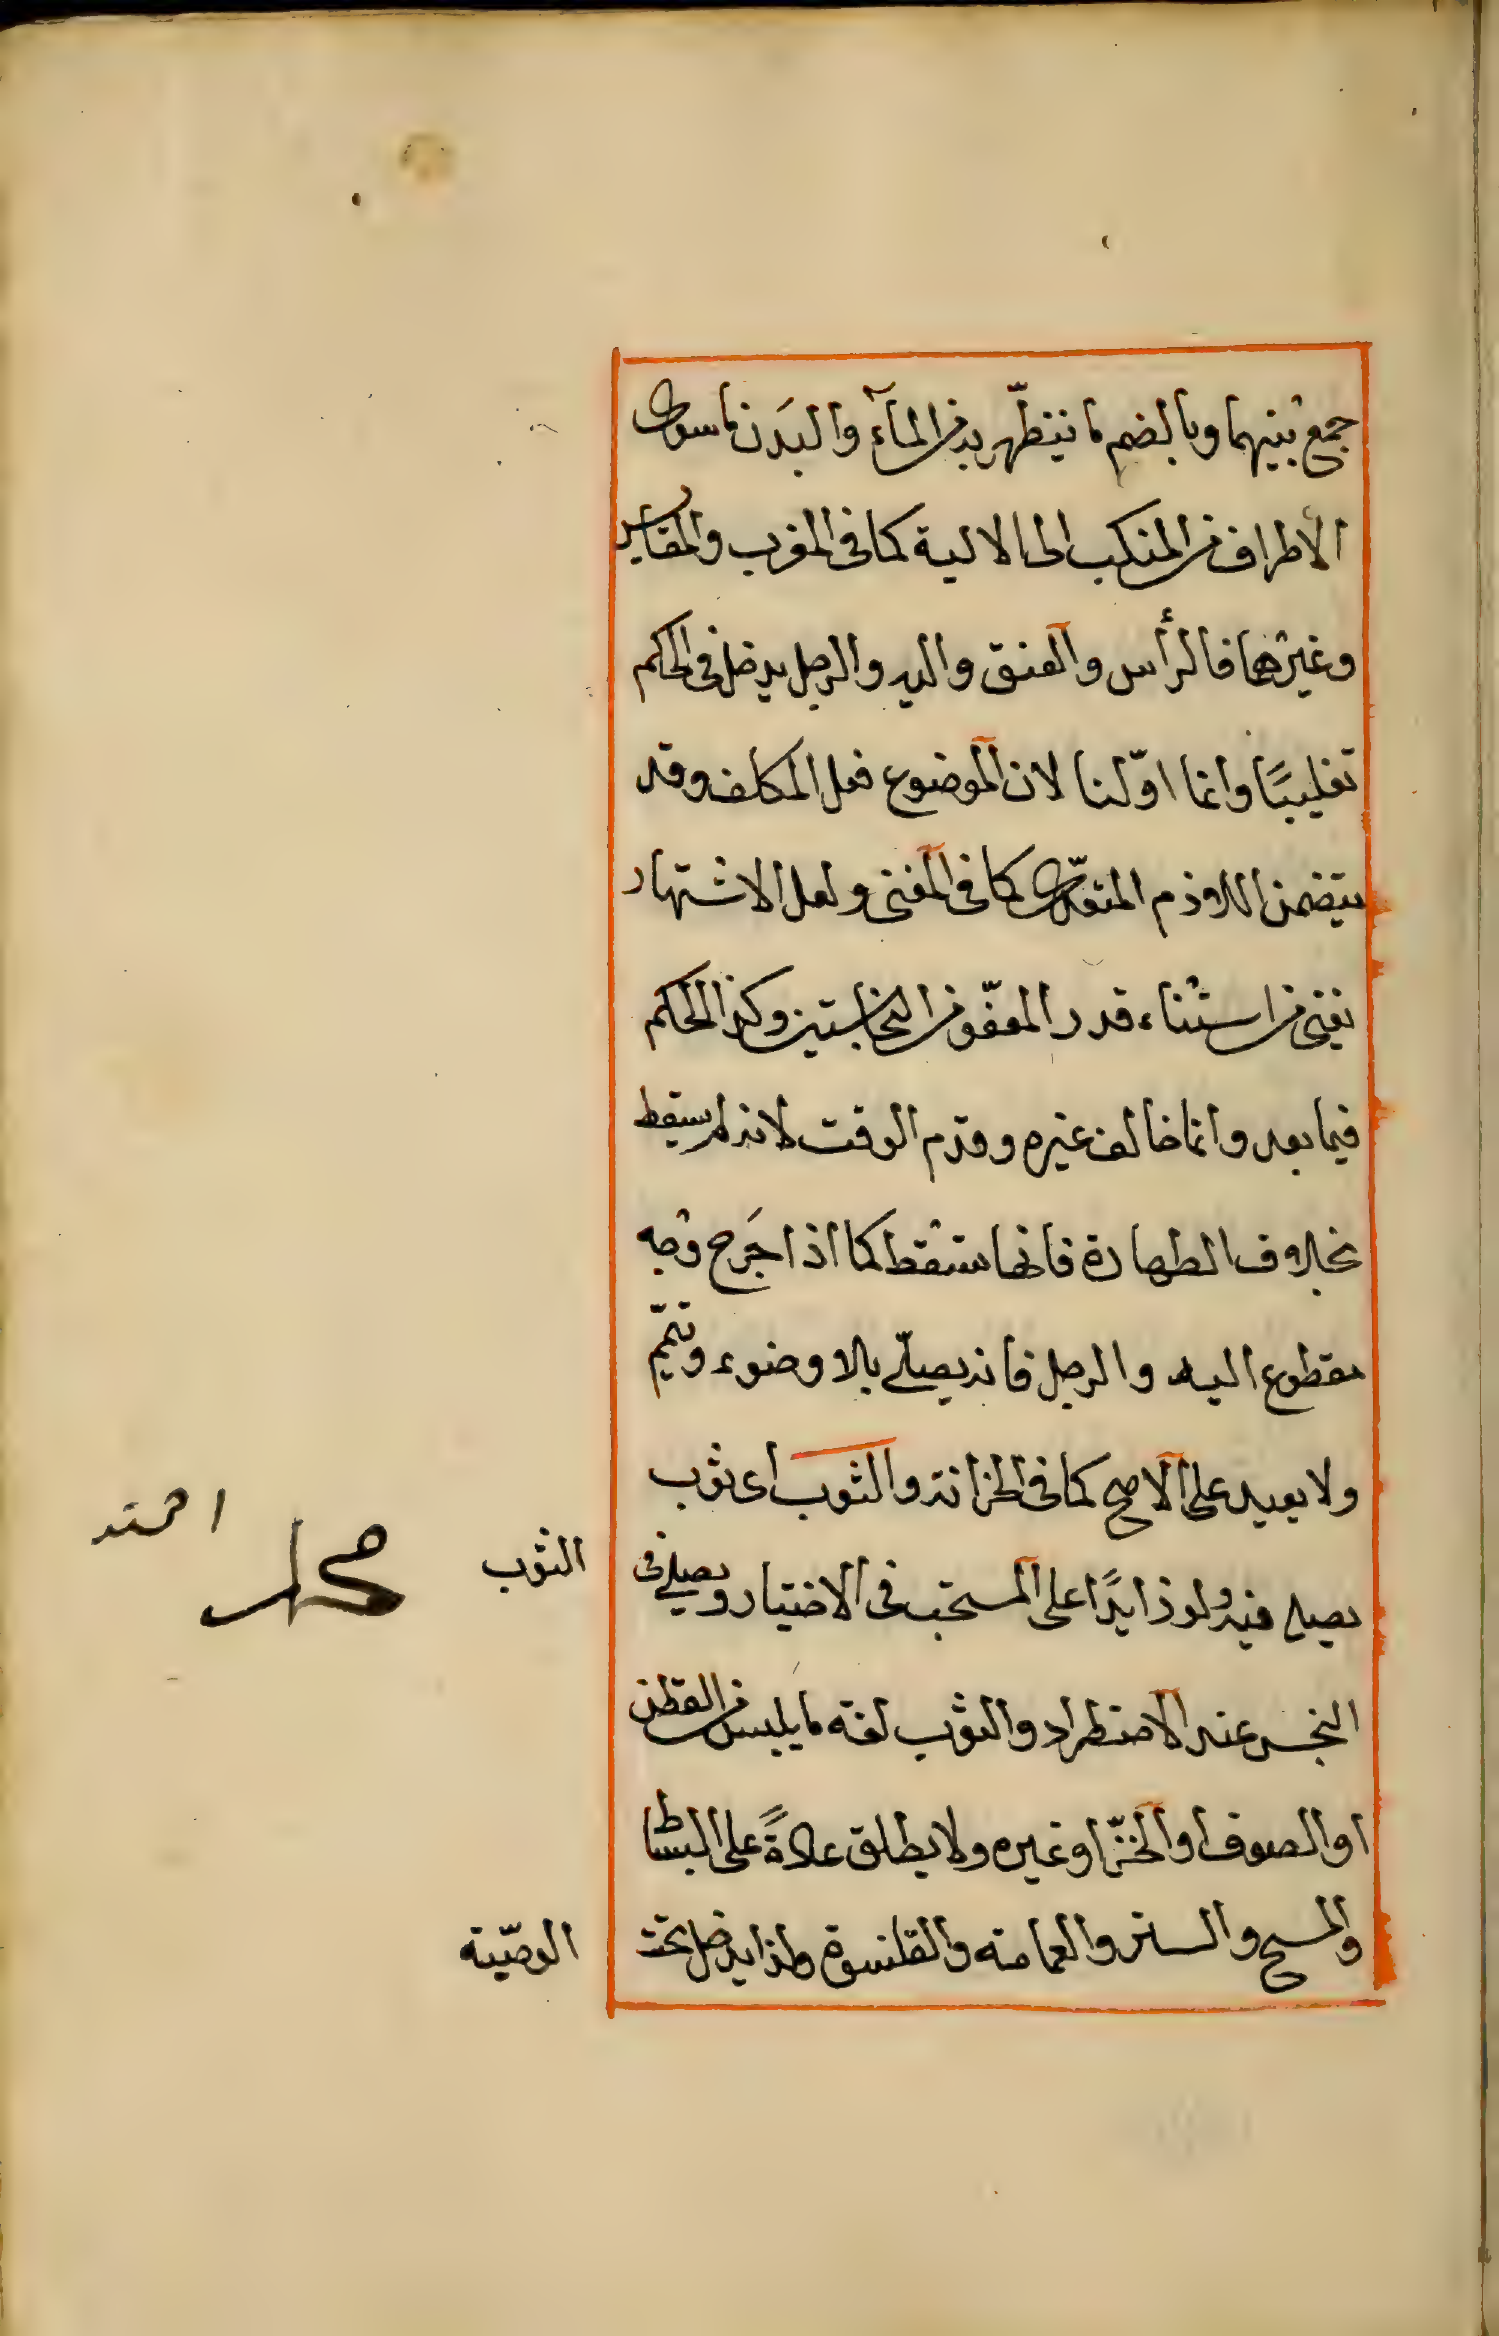 جمع بينهما وبالضم ما يتطهر به من المآء والبَدن ما سوى
الأطراف من المنكب الى الالية كما في المغرب والمقاييس
وغيرهما فالرأس والعنق واليد والرجل يدخل في الحكم
تغليبًا وانما اوّلنا لان الموضوع فعل المكلف وقد
يتضمن اللازم المتعدّى كما في المغنى ولعل الاشتهار
يغنى من استثناء قدر المعفّو من النجاستين وكذا الحكم
فيما بعد وانما خالف غيره وقدم الوقت لانه لم يسقط
بخلاف الطهارة فانها ستسقط كما اذا جَرح وجه
مقطوع اليد والرجل فانه يصلّى بلا وضوء وتيمّم
ولا يعيد على الاصح كما في الخزانة والثوب اى ثوب
يصلى فيه ولو زايدًا على المستحب في الاختيار ويصلى في
النجس عند الاضطرار والثوب لغة ما يلبس من القطن
او الصوف او الخزّ او غيره ولا يطلق عادةً على البساط
والمسح والستر والعمامة والقلنسوة ولذا يدخل تحت
الثوب
محمد
الوصّية